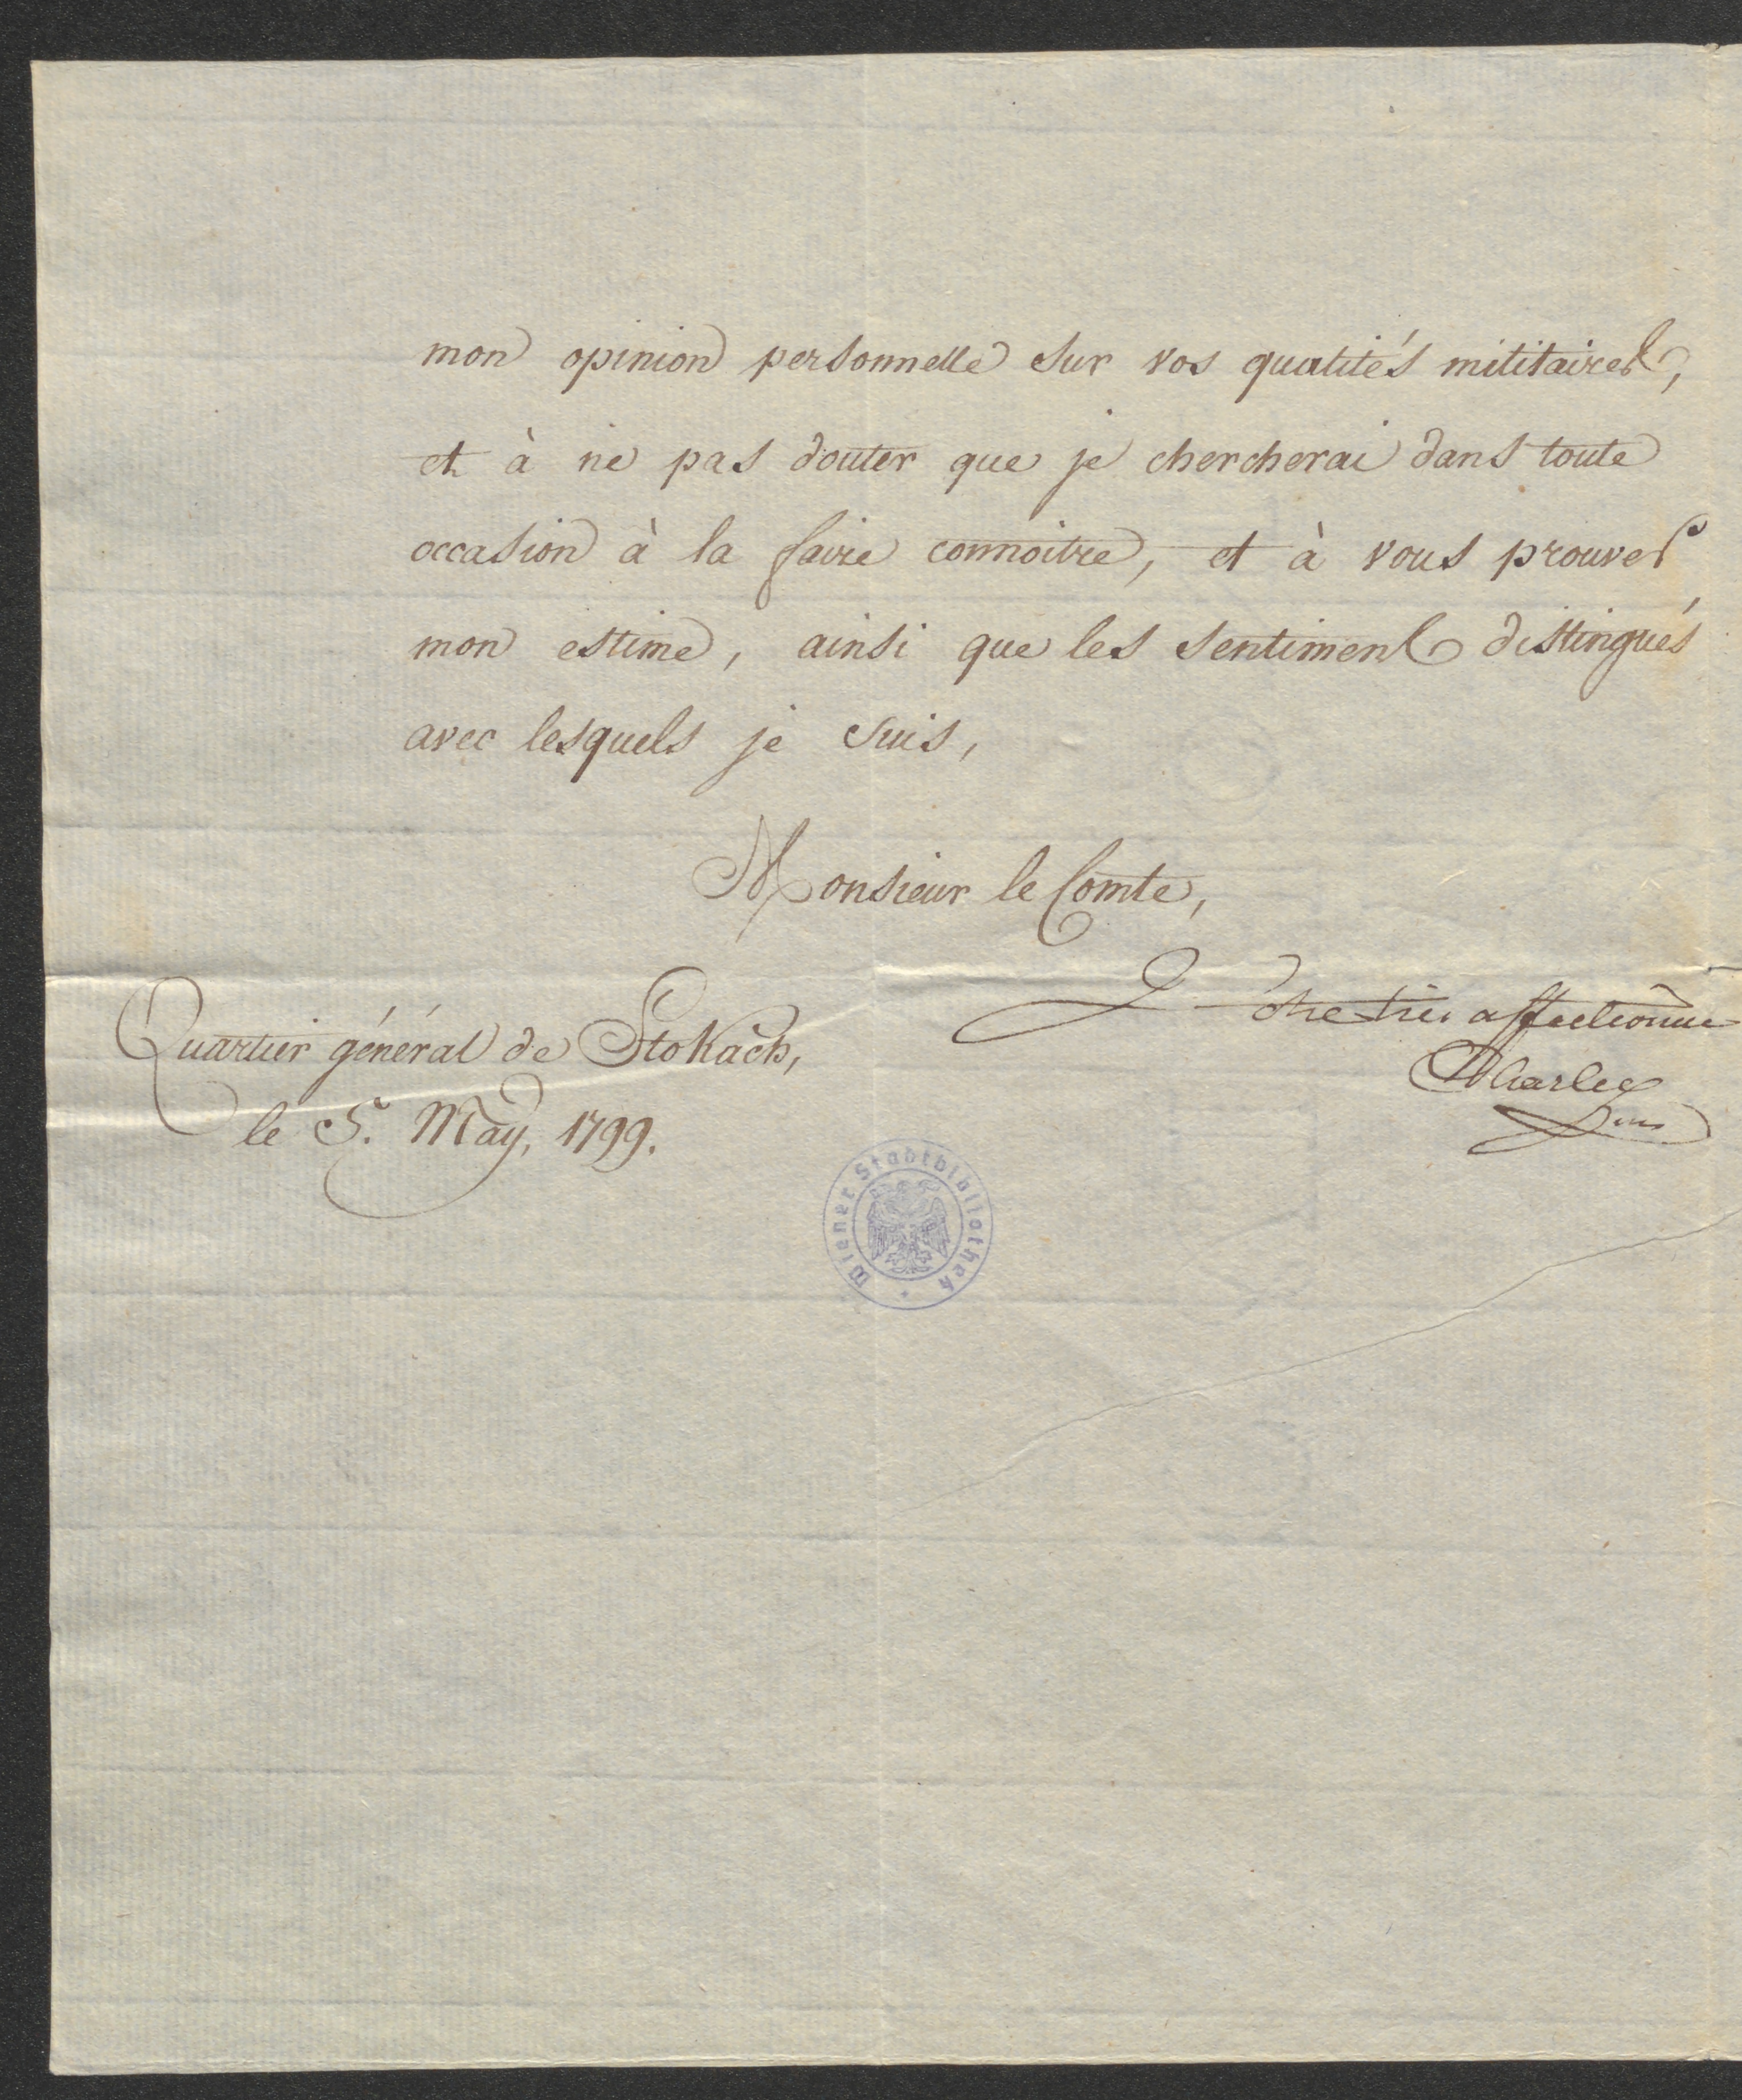 mon opinion personnelle sur vos qualités militaires,
et à ne pas douter que je chercherai dans toute
occasion à la faire connoitre, et à vous prouver
mon estime, ainsi que les sentimens distingués
avec lesquels je suis,
Monsieur le Comte,
Votre très affectionné
Charles
Quartier général de Stokach,
le 5. May, 1799.
Wiener Stadtbibliothek